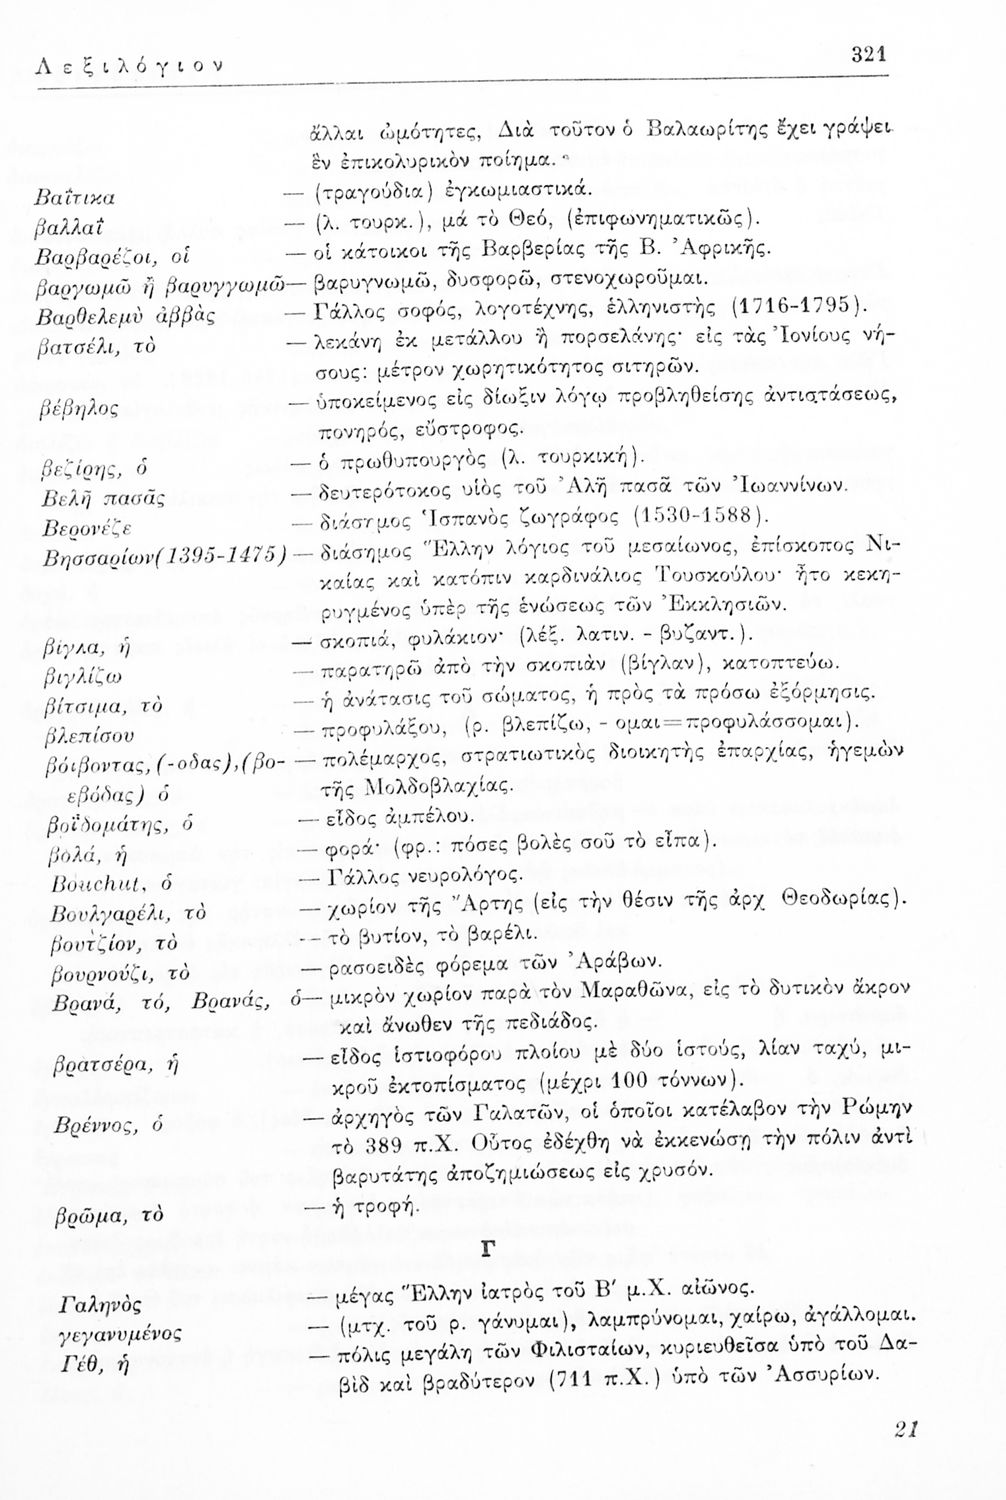 Λεξιλόγιον 321
ἄλλαι ὠμότητες, Διὰ τοῦτον ὁ Βαλαωρίτης ἔχει γράψει
ἓν ἐπικολυρικὸν ποίημα.
Βαΐτικα — (τραγούδια) ἐγκωμιαστικά.
βαλλαΐ — (λ. τουρκ.), μά τὸ Θεό, (ἐπιφωνηματικῶς).
Βαρβαρέζοι, οἱ — οἱ κάτοικοι τῆς Βαρβερίας τῆς Β. Ἀφρικῆς.
βαργωμῶ ἢ βαρυγγωμῶ— βαρυγνωμῶ, δυσφορῶ, στενοχωροῦμαι.
Βαρθελεμὺ ἀββὰς — Γάλλος σοφός, λογοτέχνης, ἑλληνιστὴς (1716-1795).
βατσέλι, τὸ — λεκάνη ἐκ μετάλλου ἢ πορσελάνης· εἰς τὰς Ἰονίους νή-
σους: μέτρον χωρητικότητος σιτηρῶν.
βέβηλος — ὑποκείμενος εἰς δίωξιν λόγῳ προβληθείσης ἀντιστάσεως,
πονηρός, εὔστροφος.
βεζίρης, ὁ — ὁ πρωθυπουργὸς (λ. τουρκική).
Βελῆ πασᾶς — δευτερότοκος υἱὸς τοῦ Ἀλῆ πασᾶ τῶν Ἰωαννίνων.
Βερονέζε — διάσημος Ἱσπανὸς ζωγράφος (1530-1588).
Βησσαρίων(1395-1475) — διάσημος Ἕλλην λόγιος τοῦ μεσαίωνος, ἐπίσκοπος Νι-
καίας καὶ κατόπιν καρδινάλιος Τουσκούλου· ἦτο κεκη-
ρυγμένος ὑπὲρ τῆς ἑνώσεως τῶν Ἐκκλησιῶν.
βίγλα, ἡ — σκοπιά, φυλάκιον· (λέξ. λατιν. - βυζαντ.).
βιγλίζω — παρατηρῶ ἀπὸ τὴν σκοπιὰν (βίγλαν), κατοπτεύω.
βίτσιμα, τὸ — ἡ ἀνάτασις τοῦ σώματος, ἡ πρὸς τὰ πρόσω ἐξόρμησις.
βλεπίσου — προφυλάξου, (ρ. βλεπίζω, - ομαι=προφυλάσσομαι).
βόιβοντας, (-οδας), (βο- — πολέμαρχος, στρατιωτικὸς διοικητὴς ἐπαρχίας, ἡγεμὼν
εβόδας) ὁ τῆς Μολδοβλαχίας.
βοϊδομάτης, ὁ — εἶδος ἀμπέλου.
βολά, ἡ — φορά· (φρ.: πόσες βολὲς σοῦ τὸ εἶπα).
Bouchut, ὁ — Γάλλος νευρολόγος.
Βουλγαρέλι, τὸ — χωρίον τῆς Ἄρτης (εἰς τὴν θέσιν τῆς ἀρχ Θεοδωρίας).
βουτζίον, τὸ — τὸ βυτίον, τὸ βαρέλι.
βουρνούζι, τὸ — ρασοειδὲς φόρεμα τῶν Ἀράβων.
Βρανά, τό, Βρανάς, ὁ— μικρὸν χωρίον παρὰ τὸν Μαραθῶνα, εἰς τὸ δυτικὸν ἄκρον
καὶ ἄνωθεν τῆς πεδιάδος.
βρατσέρα, ἡ — εἶδος ἱστιοφόρου πλοίου μὲ δύο ἱστούς, λίαν ταχύ, μι-
κροῦ ἐκτοπίσματος (μέχρι 100 τόννων).
Βρέννος, ὁ — ἀρχηγὸς τῶν Γαλατῶν, οἱ ὁποῖοι κατέλαβον τὴν Ρώμην
τὸ 389 π.Χ. Οὗτος ἐδέχθη νὰ ἐκκενώσῃ τὴν πόλιν ἀντὶ
βαρυτάτης ἀποζημιώσεως εἰς χρυσόν.
βρῶμα, τὸ — ἡ τροφή.
Γ
Γαληνὸς — μέγας Ἕλλην ἰατρὸς τοῦ Β′ μ.Χ. αἰῶνος.
γεγανυμένος — (μτχ. τοῦ ρ. γάνυμαι), λαμπρύνομαι, χαίρω, ἀγάλλομαι.
Γέθ, ἡ — πόλις μεγάλη τῶν Φιλισταίων, κυριευθεῖσα ὑπὸ τοῦ Δα-
βὶδ καὶ βραδύτερον (711 π.Χ.) ὑπὸ τῶν Ἀσσυρίων.
21